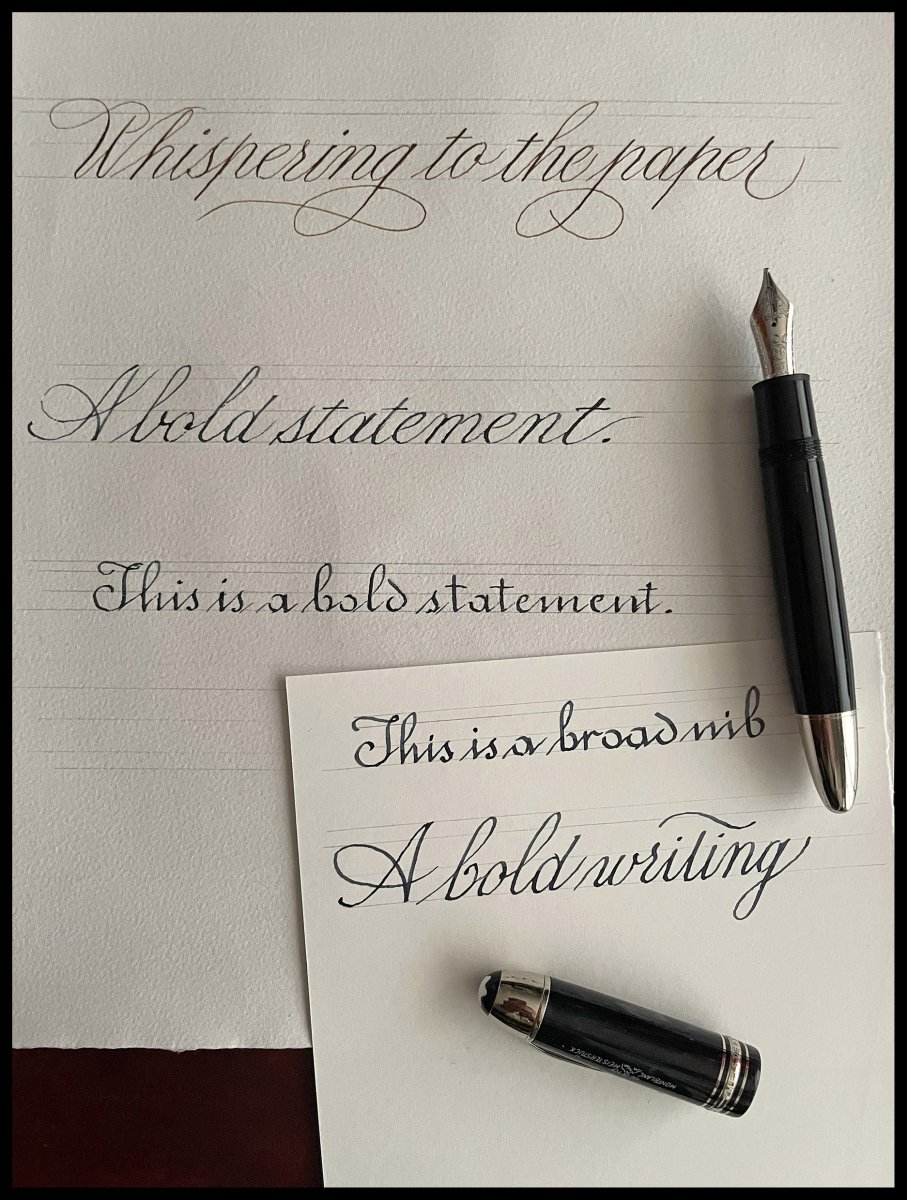 Whispering to the paper
A bold statement.
This is a bold statement.
This is a broad nib
A bold writing
MONTBLANC MEISTERSTÜCK